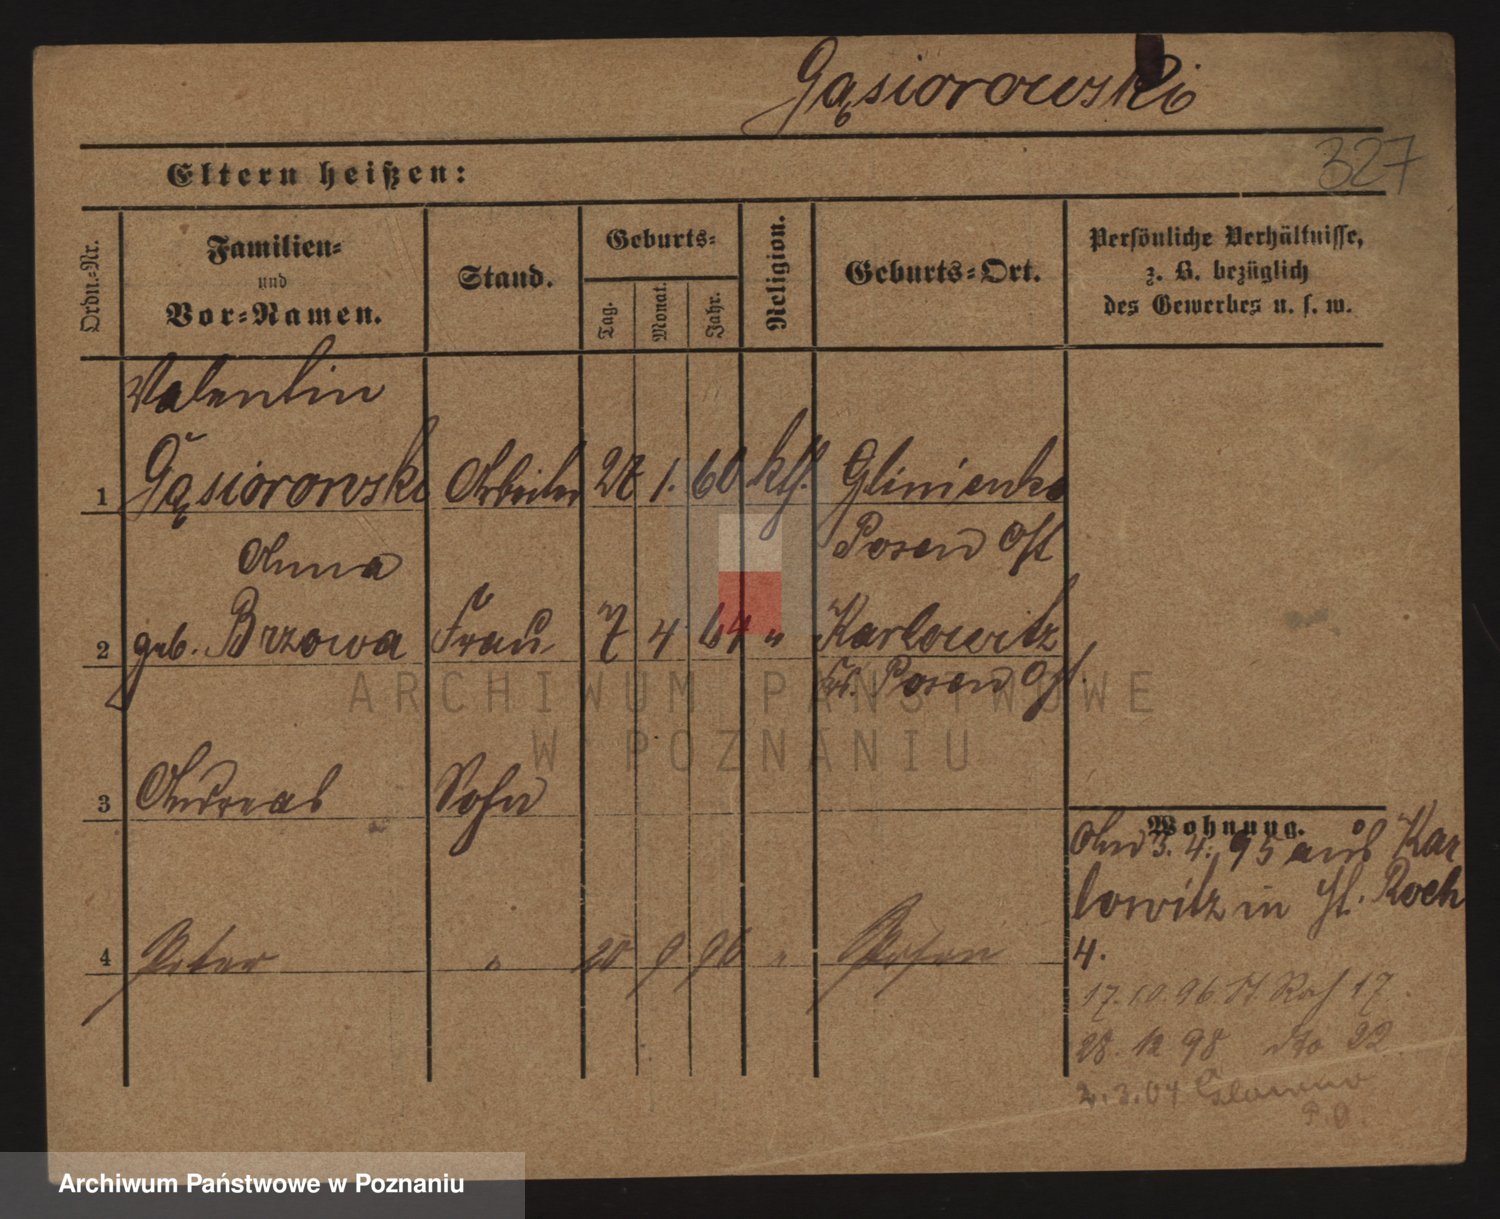 Gąsiorowski
327
Eltern heißen:
Ordn.-Nr.
Familien-
und
Vor-Namen.
Stand.
Geburts-
Tag.
Monat.
Jahr.
Religion.
Geburts-Ort.
Persönliche Verhältnisse,
z. B. bezüglich
des Gewerbes u. s. w.
Valentin
1 Gąsiorowski Arbeiter 28 1. 60 kth. Glinienko
Posen Ost
Anna
2 geb. Brzowa Frau 7 4 64 " Karlowitz
Kr. Posen Ost.
3 Andreas Sohn
4 Peter " 20 9 96 " Posen
Wohnung.
And 3.4. 95 aus Kar
lowitz in St. Roch
4.
17.10.96 St. Roch 17
28. 12 98 dto 22
2.3.04 Glowno
P.O.
ARCHIWUM PAŃSTWOWE
W POZNANIU
Archiwum Państwowe w Poznaniu